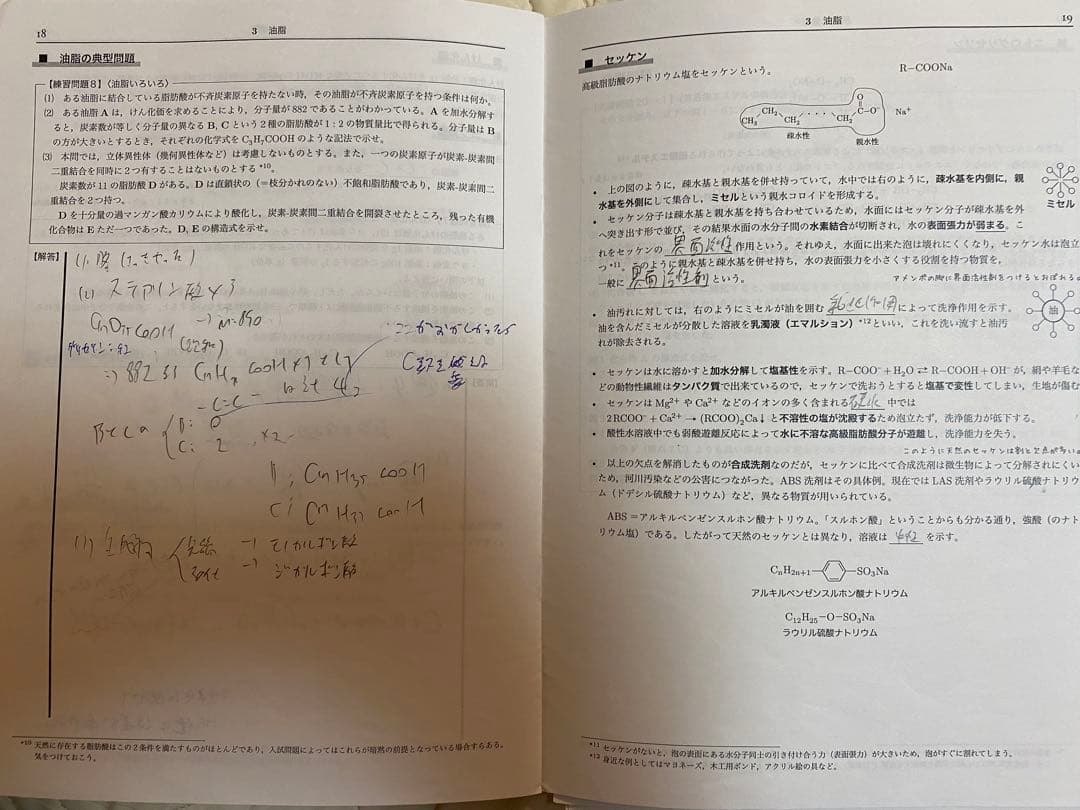 18
3 油脂
■ 油脂の典型問題
【練習問題8】〈油脂いろいろ〉
(1) ある油脂に結合している脂肪酸が不斉炭素原子を持たない時，その油脂が不斉炭素原子を持つ条件は何か。
(2) ある油脂 A は，けん化価を求めることにより，分子量が 882 であることがわかっている。A を加水分解す
ると，炭素数が等しく分子量の異なる B, C という 2 種の脂肪酸が 1 : 2 の物質量比で得られる。分子量は B
の方が大きいとするとき，それぞれの化学式を C₃H₇COOH のような記法で示せ。
(3) 本問では，立体異性体（幾何異性体など）は考慮しないものとする。また，一つの炭素原子が炭素-炭素間
二重結合を同時に 2 つ有することはないものとする*¹⁰。
炭素数が 11 の脂肪酸 D がある。D は直鎖状の（＝枝分かれのない）不飽和脂肪酸であり，炭素-炭素間二
重結合を 2 つ持つ。
D を十分量の過マンガン酸カリウムにより酸化し，炭素-炭素間二重結合を開裂させたところ，残った有機
化合物は E ただ一つであった。D, E の構造式を示せ。
【解答】
(2) ステアリン酸×3
C₁₇H₃₅COOH → M=890
⇒ 882
B: 0
C: 2
B: C₁₇H₃₅COOH
C: C₁₇H₃₁COOH
→ モノカルボン酸
→ ジカルボン酸
*¹⁰ 天然に存在する脂肪酸はこの 2 条件を満たすものがほとんどであり，入試問題によってはこれらが暗黙の前提となっている場合すらある。
気をつけておこう。
3 油脂
19
■ セッケン
高級脂肪酸のナトリウム塩をセッケンという。
R−COONa
CH₃ CH₂ CH₂ ····· CH₂ O C−O⁻ Na⁺
疎水性
親水性
• 上の図のように，疎水基と親水基を併せ持っていて，水中では右のように，疎水基を内側に，親
水基を外側にして集合し，ミセルという親水コロイドを形成する。
ミセル
• セッケン分子は疎水基と親水基を持ち合わせているため，水面にはセッケン分子が疎水基を外
へ突き出す形で並び，その結果水面の水分子間の水素結合が切断され，水の表面張力が弱まる。こ
れをセッケンの 界面活性 作用という。それゆえ，水面に出来た泡は壊れにくくなり，セッケン水は泡立
つ*¹¹。このように親水基と疎水基を併せ持ち，水の表面張力を小さくする役割を持つ物質を，
一般に 界面活性剤 という。
アメンボの脚に界面活性剤をつけるとおぼれる
• 油汚れに対しては，右のようにミセルが油を囲む 乳化作用 によって洗浄作用を示す。
油を含んだミセルが分散した溶液を乳濁液（エマルション）*¹²といい，これを洗い流すと油汚
れが除去される。
油
• セッケンは水に溶かすと加水分解して塩基性を示す。R−COO⁻＋H₂O ⇄ R−COOH＋OH⁻ が，絹や羊毛な
どの動物性繊維はタンパク質で出来ているので，セッケンで洗おうとすると塩基で変性してしまい，生地が傷む
• セッケンは Mg²⁺ や Ca²⁺ などのイオンの多く含まれる 硬水 中では
2RCOO⁻＋Ca²⁺ → (RCOO)₂Ca↓ と不溶性の塩が沈殿するため泡立たず，洗浄能力が低下する。
• 酸性水溶液中でも弱酸遊離反応によって水に不溶な高級脂肪酸分子が遊離し，洗浄能力を失う。
このように天然のセッケンは割と欠点が多い
• 以上の欠点を解消したものが合成洗剤なのだが，セッケンに比べて合成洗剤は微生物によって分解されにくい
ため，河川汚染などの公害につながった。ABS 洗剤はその具体例。現在では LAS 洗剤やラウリル硫酸ナトリウ
ム（ドデシル硫酸ナトリウム）など，異なる物質が用いられている。
ABS＝アルキルベンゼンスルホン酸ナトリウム。「スルホン酸」ということからも分かる通り，強酸（のナト
リウム塩）である。したがって天然のセッケンとは異なり，溶液は 中性 を示す。
CₙH₂ₙ₊₁− −SO₃Na
アルキルベンゼンスルホン酸ナトリウム
C₁₂H₂₅−O−SO₃Na
ラウリル硫酸ナトリウム
*¹¹ セッケンがないと，泡の表面にある水分子同士の引き付け合う力（表面張力）が大きいため，泡がすぐに割れてしまう。
*¹² 身近な例としてはマヨネーズ，木工用ボンド，アクリル絵の具など。